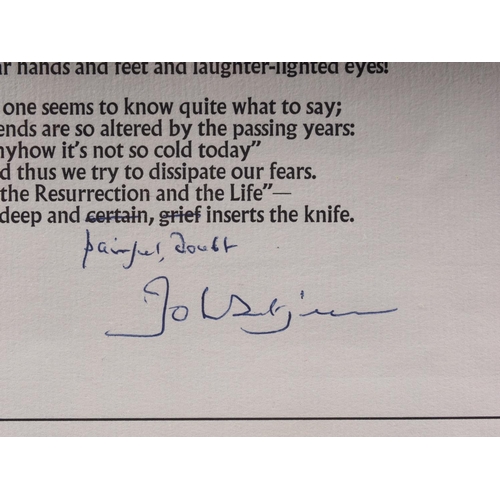 ar hands and feet and laughter-lighted eyes!
one seems to know quite what to say;
ends are so altered by the passing years:
nyhow it's not so cold today"
d thus we try to dissipate our fears.
the Resurrection and the Life"—
deep and certain, grief inserts the knife.
painful, doubt
John Betjeman